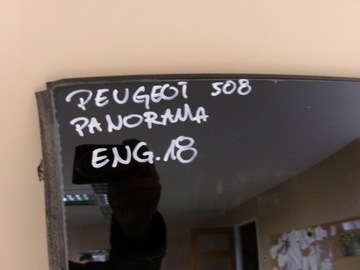 PEUGEOT 508
PANORAMA
ENG.18